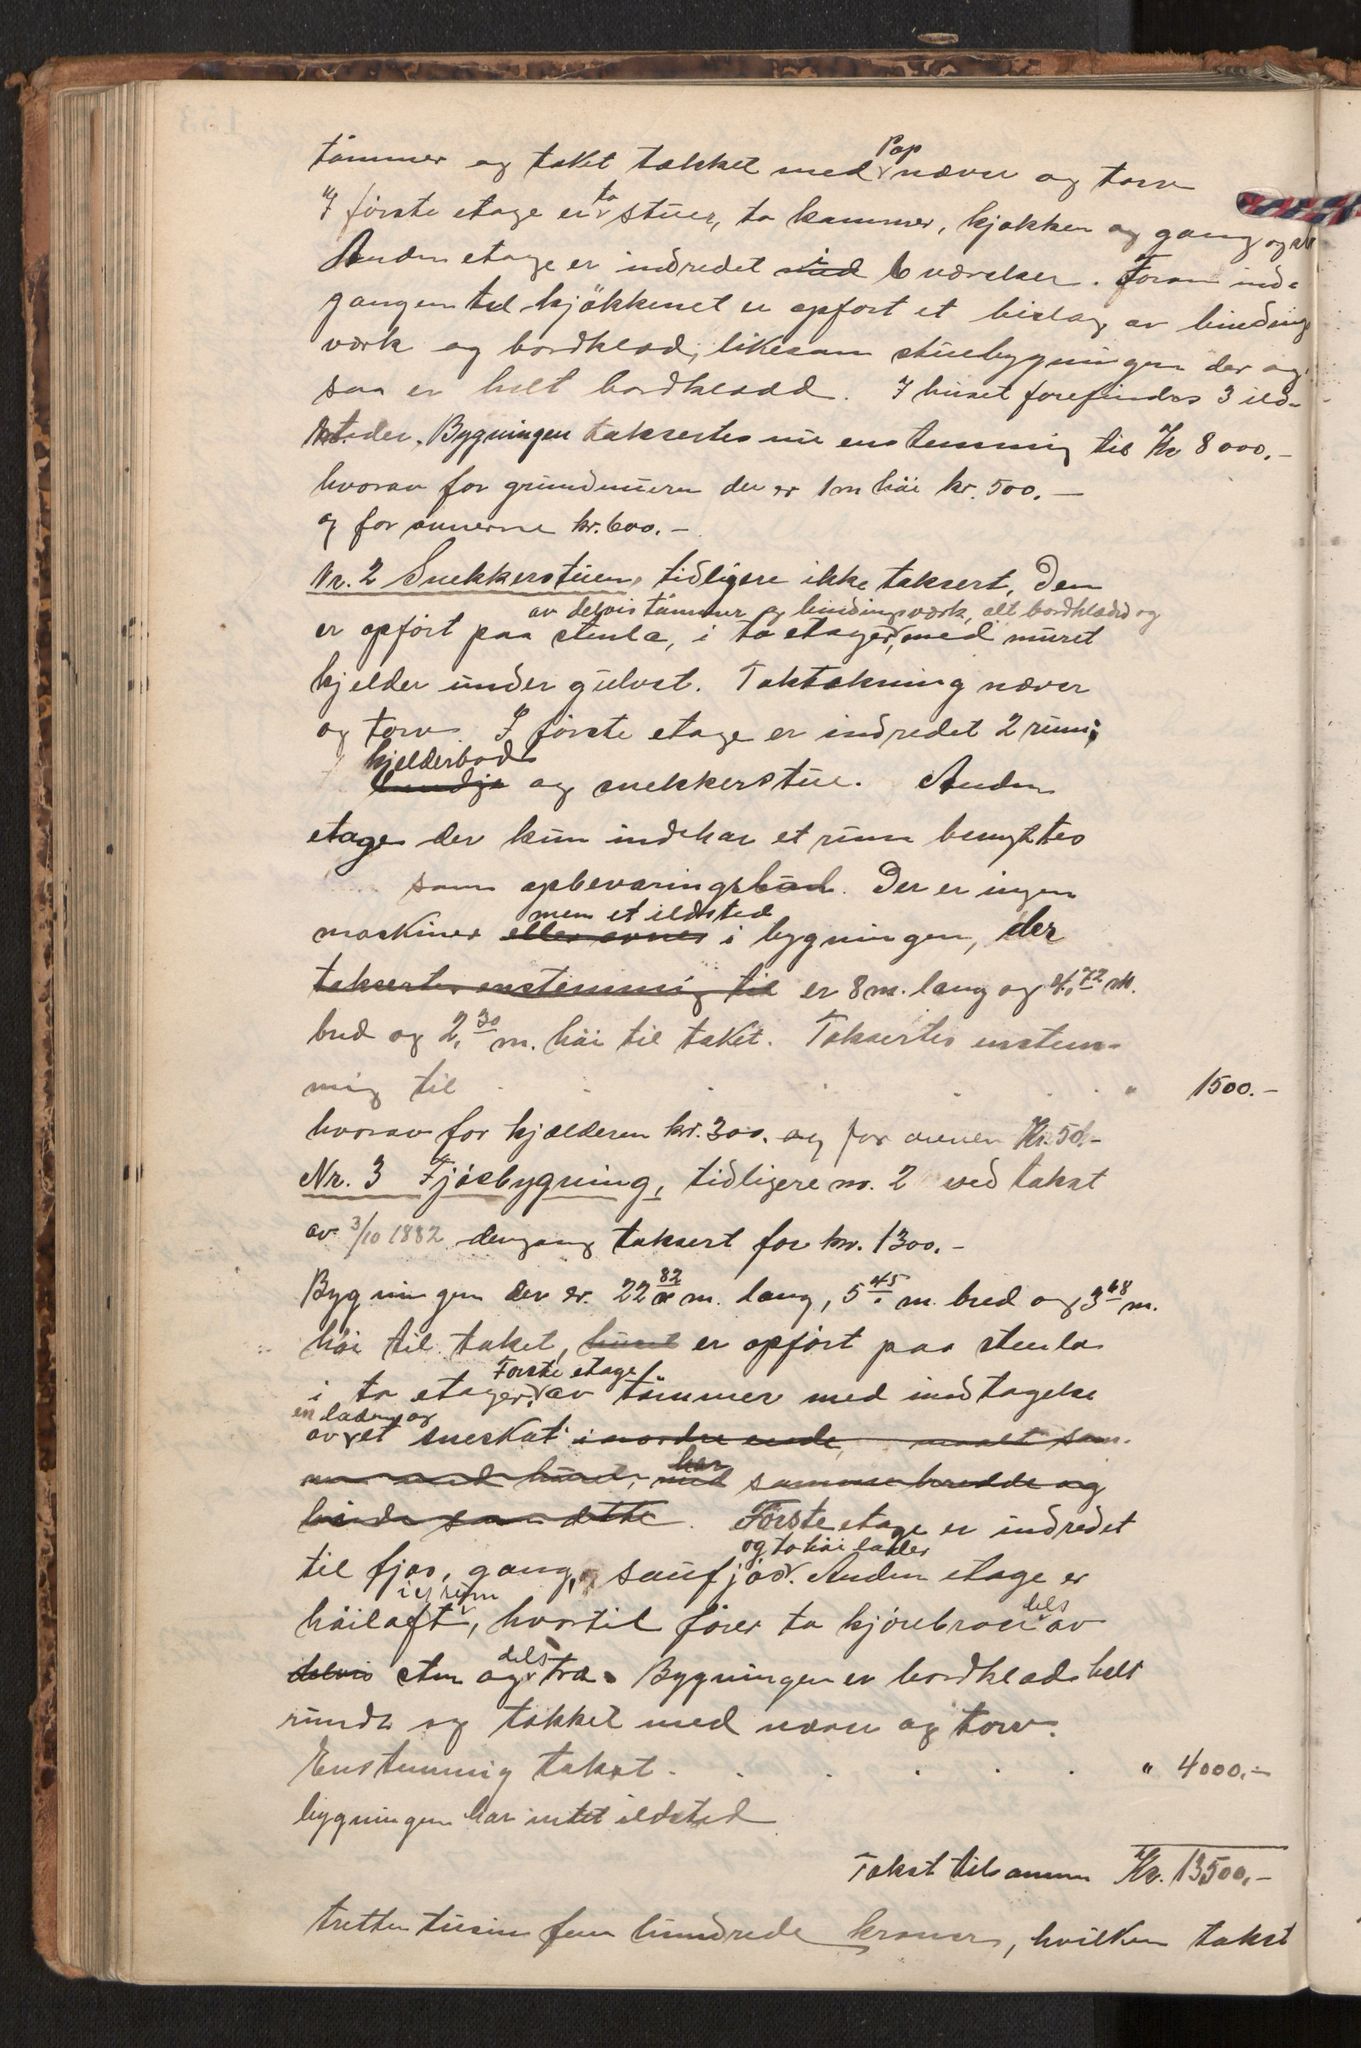 tømmer og taket tækket med Pap næver og torv
I første etage er to stuer, to kammer, kjøkken og gang og
Anden etage er indredet med i 6 værelser. Foran ind-
gangen til kjøkkenet er opført et bislag av binding
værk og bordklæd, likesom stuebygningen der og
saa er helt bordklædd. I huset forefindes 3 ild-
steder. Bygningen taksertes nu enstemmig til Kr 8000.-
hvorav for grundmuren der er 1 m høi kr. 500.-
og for ovnerne kr. 600.-
Nr. 2 Snekkerstuen, tidligere ikke taksert. Den
av delvis tømmer og bindingsværk, alt bordklædd og
er opført paa stenla, i to etager, med muret
kjelder under gulvet. Taktækning næver
og torv. I første etage er indredet 2 rum;
kjelderbod
og snekkerstue. Anden
etage der kun indehar et rum benyttes
som opbevaringsbod. Der er ingen
men et ildsted
maskiner eller ovner i bygningen, der
taksertes enstemmig til er 8 m. lang og 4,72 M.
bred og 2,30 m. høi til taket. Taksertes enstem-
mig til . . . . . " 1500.-
hvorav for kjælderen kr. 300. og for ovnen Kr. 50.-
Nr. 3 Fjøsbygning, tidligere no. 2 ved takst
av 3/10 1882 dengang taksert for kr. 1300.-
Bygningen der er 22 82 m. lang, 5 45 m. bred og 3 68 m.
høi til taket, huset er opført paa stenla
Første etage
i to etager, av tømmer med undtagelse
en lade og
av et sneskot i nordre ende,
har
med samme bredde og
høide som dette. Første etage er indredet
og to høilader
til fjøs, gang, og saufjøs. Anden etage er
i et rum
høilaft, hvortil fører to kjørebroer dels av
delvis sten og dels træ. Bygningen er bordklæd helt
rundt og tækket med næver og torv.
Enstemmig takst . . . . " 4000.-
bygningen har intet ildsted
Takst tilsammen Kr. 13500.-
tretten tusin fem hundrede kroner, hvilken takst